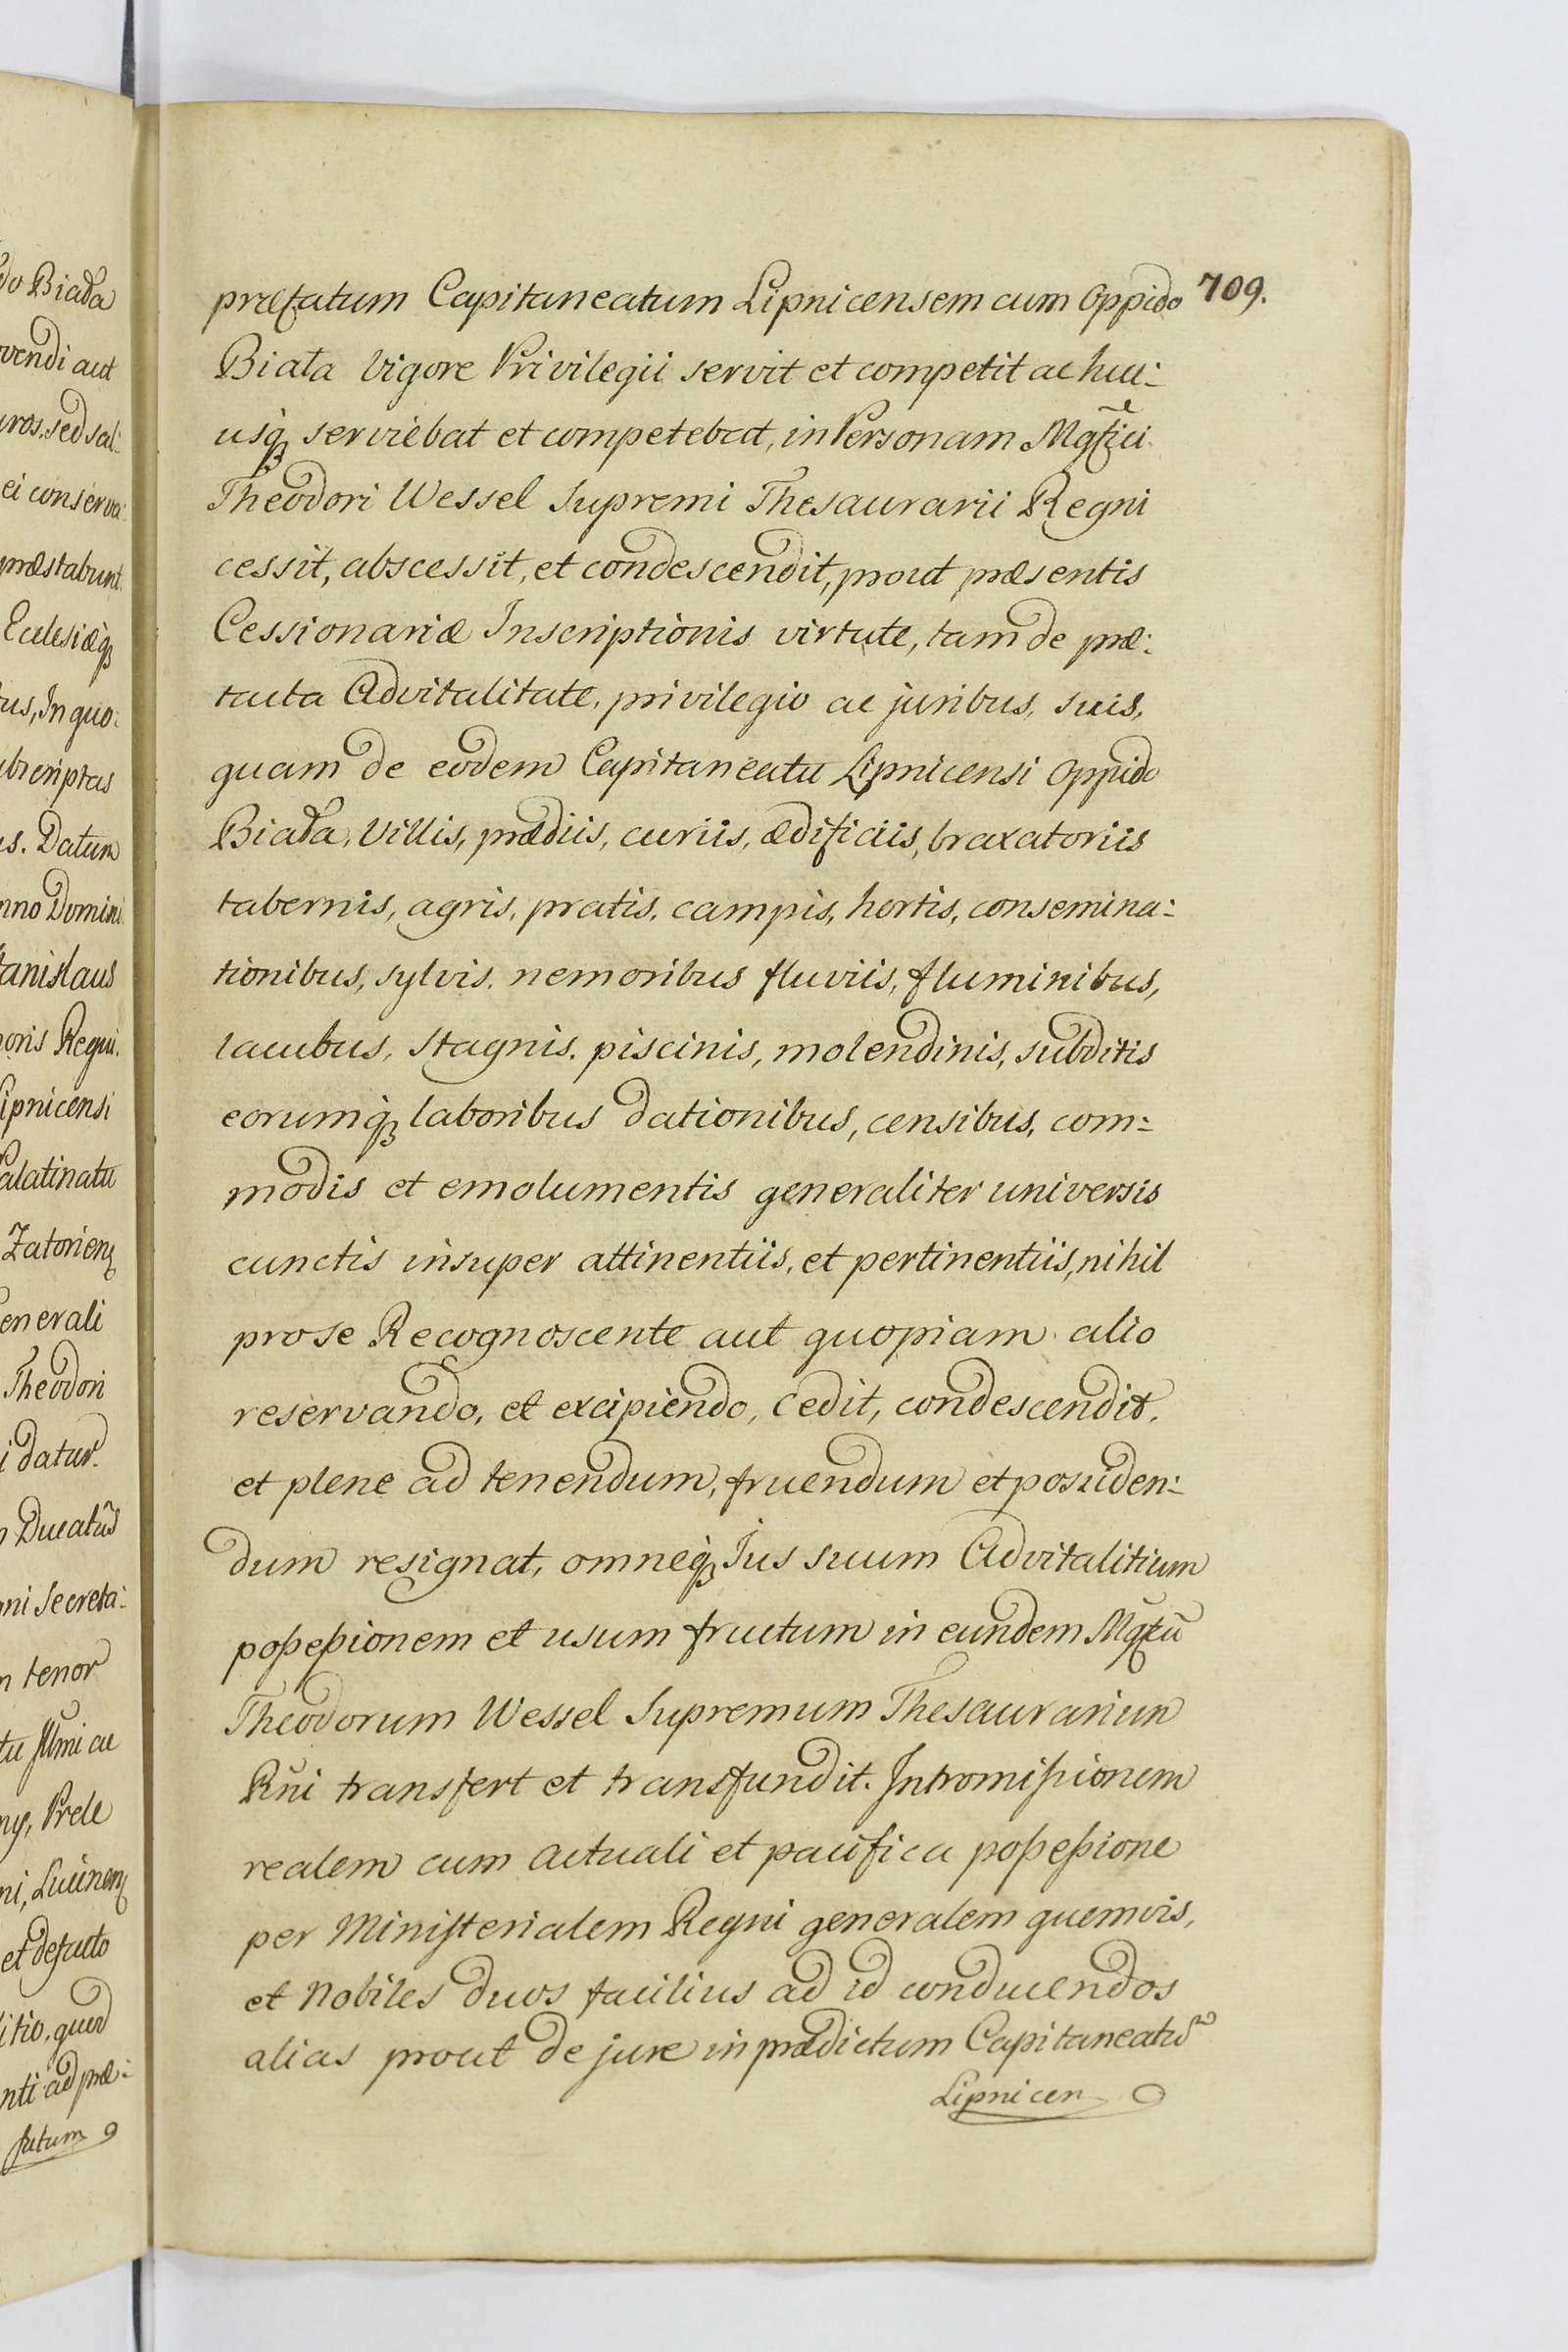 do Biała
vendi aut
uros, sed sal:
ei conserva:
præstabunt
Ecclesiæq3
tus, In quo:
ibscriptas
is. Datum
nno Domini
tanislaus
noris Regni.
Lipnicensi
Palatinatu
Zatorien
enerali
Theodori
i datur
Ducatus
ni Secreta:
n tenor
tu Illmi ac
ny, Prele
ni, Lucinen
et defacto
itio, quod
nti ad præ:
fatum
709.
præfatum Capitaneatum Lipnicensem cum Oppido
Biała Vigore Privilegii servit et competit ac huc:
usq3 serviebat et competebat, in Personam Mgfici
Theodori Wessel Supremi Thesaurarii Regni
cessit, abscessit, et condescendit, prout præsentis
Cessionariæ Inscriptionis virtute, tam de præ:
tacta Advitalitate, privilegio ac juribus, suis,
quam de eodem Capitaneatu Lipnicensi Oppido
Biała, Villis, prædiis, curiis, ædificiis, braxatoriis
tabernis, agris, pratis, campis, hortis, consemina:
tionibus, sylvis, nemoribus fluviis, fluminibus,
lacubus, stagnis, piscinis, molendinis, subditis
eorumq3 laboribus dationibus, censibus, com:
modis et emolumentis generaliter universis
cunctis insuper attinentiis, et pertinentiis, nihil
pro se Recognoscente aut quopiam alio
reservando, et excipiendo, cedit, condescendit,
et plene ad tenendum, fruendum et posiden:
dum resignat, omneq3 Jus suum Advitalitium
poßeßionem et usum fructum in eundem Mgfcũ
Theodorum Wessel Supremum Thesaurarium
Rñi transfert et transfundit. Intromißionem
realem cum actuali et pacifica poßeßione
per Ministerialem Regni generalem quemvis,
et Nobiles duos facilius ad id conducendos
alias prout de jure in prædictum Capitaneatũ
Lipnicen